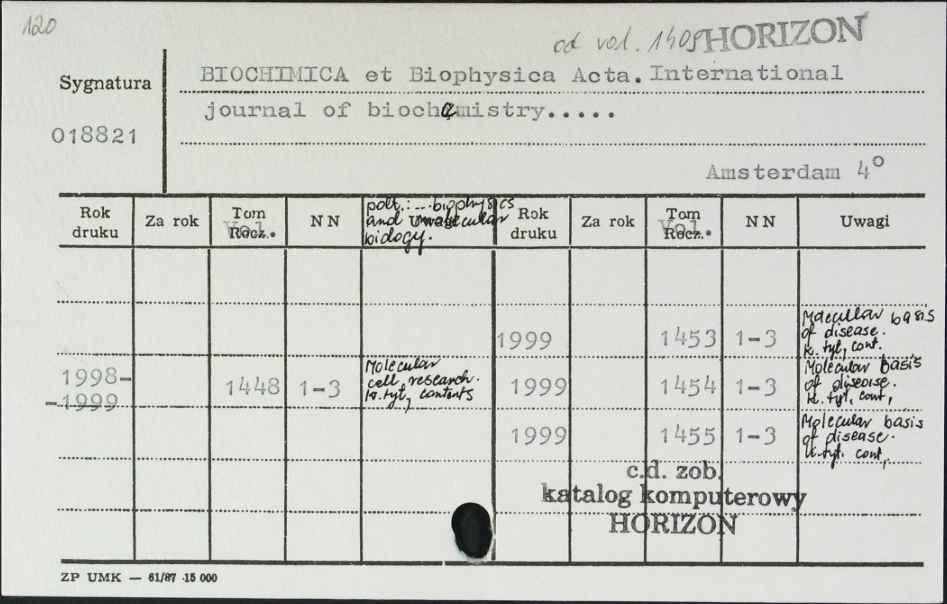 120
od vol. 1409 HORIZON
Sygnatura
018821
BIOCHIMICA et Biophysica Acta. International
journal of biochemistry.....
Amsterdam 4°
Rok druku
Za rok
Tom Rocz. Vol.
N N
podt.: ...biophysics
and molecular
biology.
Rok druku
Za rok
Tom Rocz. Vol.
N N
Uwagi
1999 1453 1-3 Molecular basis
of disease.
k. tyt, cont.
1998-
-1999 1448 1-3 Molecular
cell research.
k. tyt, contents
1999 1454 1-3 Molecular basis
of disease.
k. tyt, cont,
1999 1455 1-3 Molecular basis
of disease.
k. tyt. cont,
c.d. zob.
katalog komputerowy
HORIZON
ZP UMK — 61/87 ·15 000